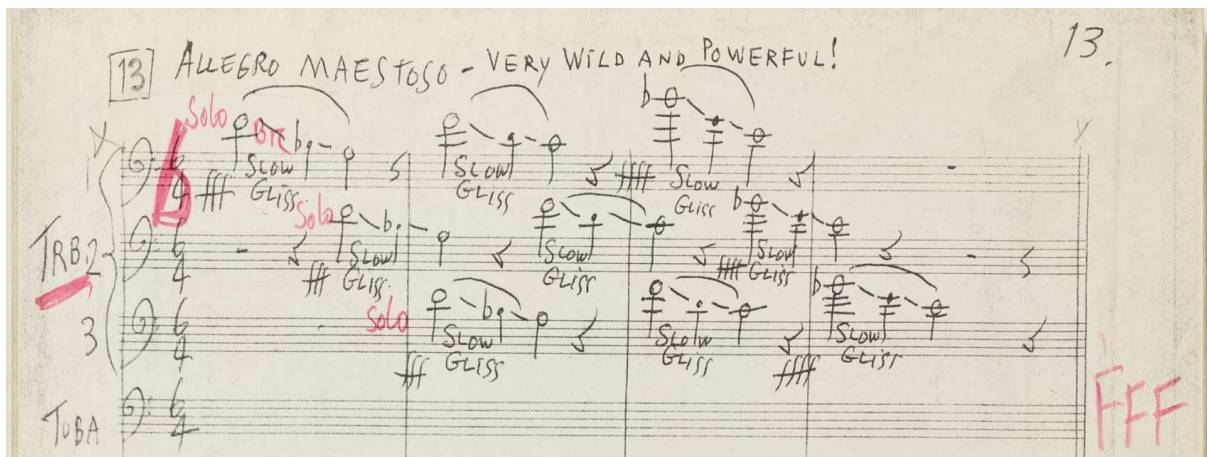 13.
13 ALLEGRO MAESTOSO - VERY WILD AND POWERFUL!
Solo
1 6 4 fff SLOW GLISS SLOW GLISS ffff SLOW GLISS
Solo
TRB. 2 6 4 fff SLOW GLISS SLOW GLISS ffff SLOW GLISS
Solo
3 6 4 fff SLOW GLISS SLOW GLISS ffff SLOW GLISS
TUBA 6 4
FFF